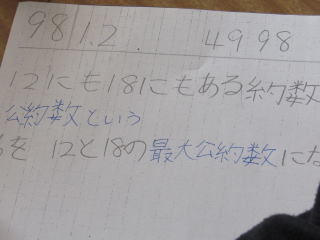 98 1.2 4998
12にも18にもある約数
公約数という
を 12と18の最大公約数にな